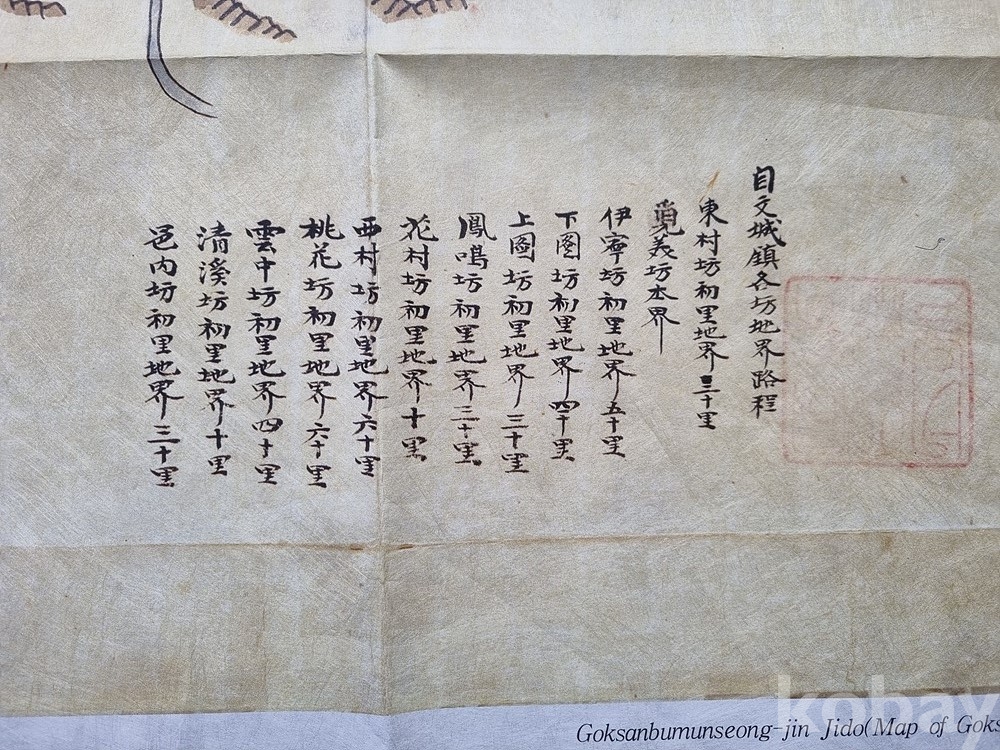 自文城鎮各坊地界路程
東村坊初里地界三十里
覓美坊本界
伊寧坊初里地界五十里
下圖坊初里地界四十里
上圖坊初里地界三十里
鳳鳴坊初里地界三十里
花村坊初里地界十里
西村坊初里地界六十里
桃花坊初里地界六十里
雲中坊初里地界四十里
清溪坊初里地界十里
邑內坊初里地界三十里
kobay
Goksanbumunseong-jin Jido(Map of Goks